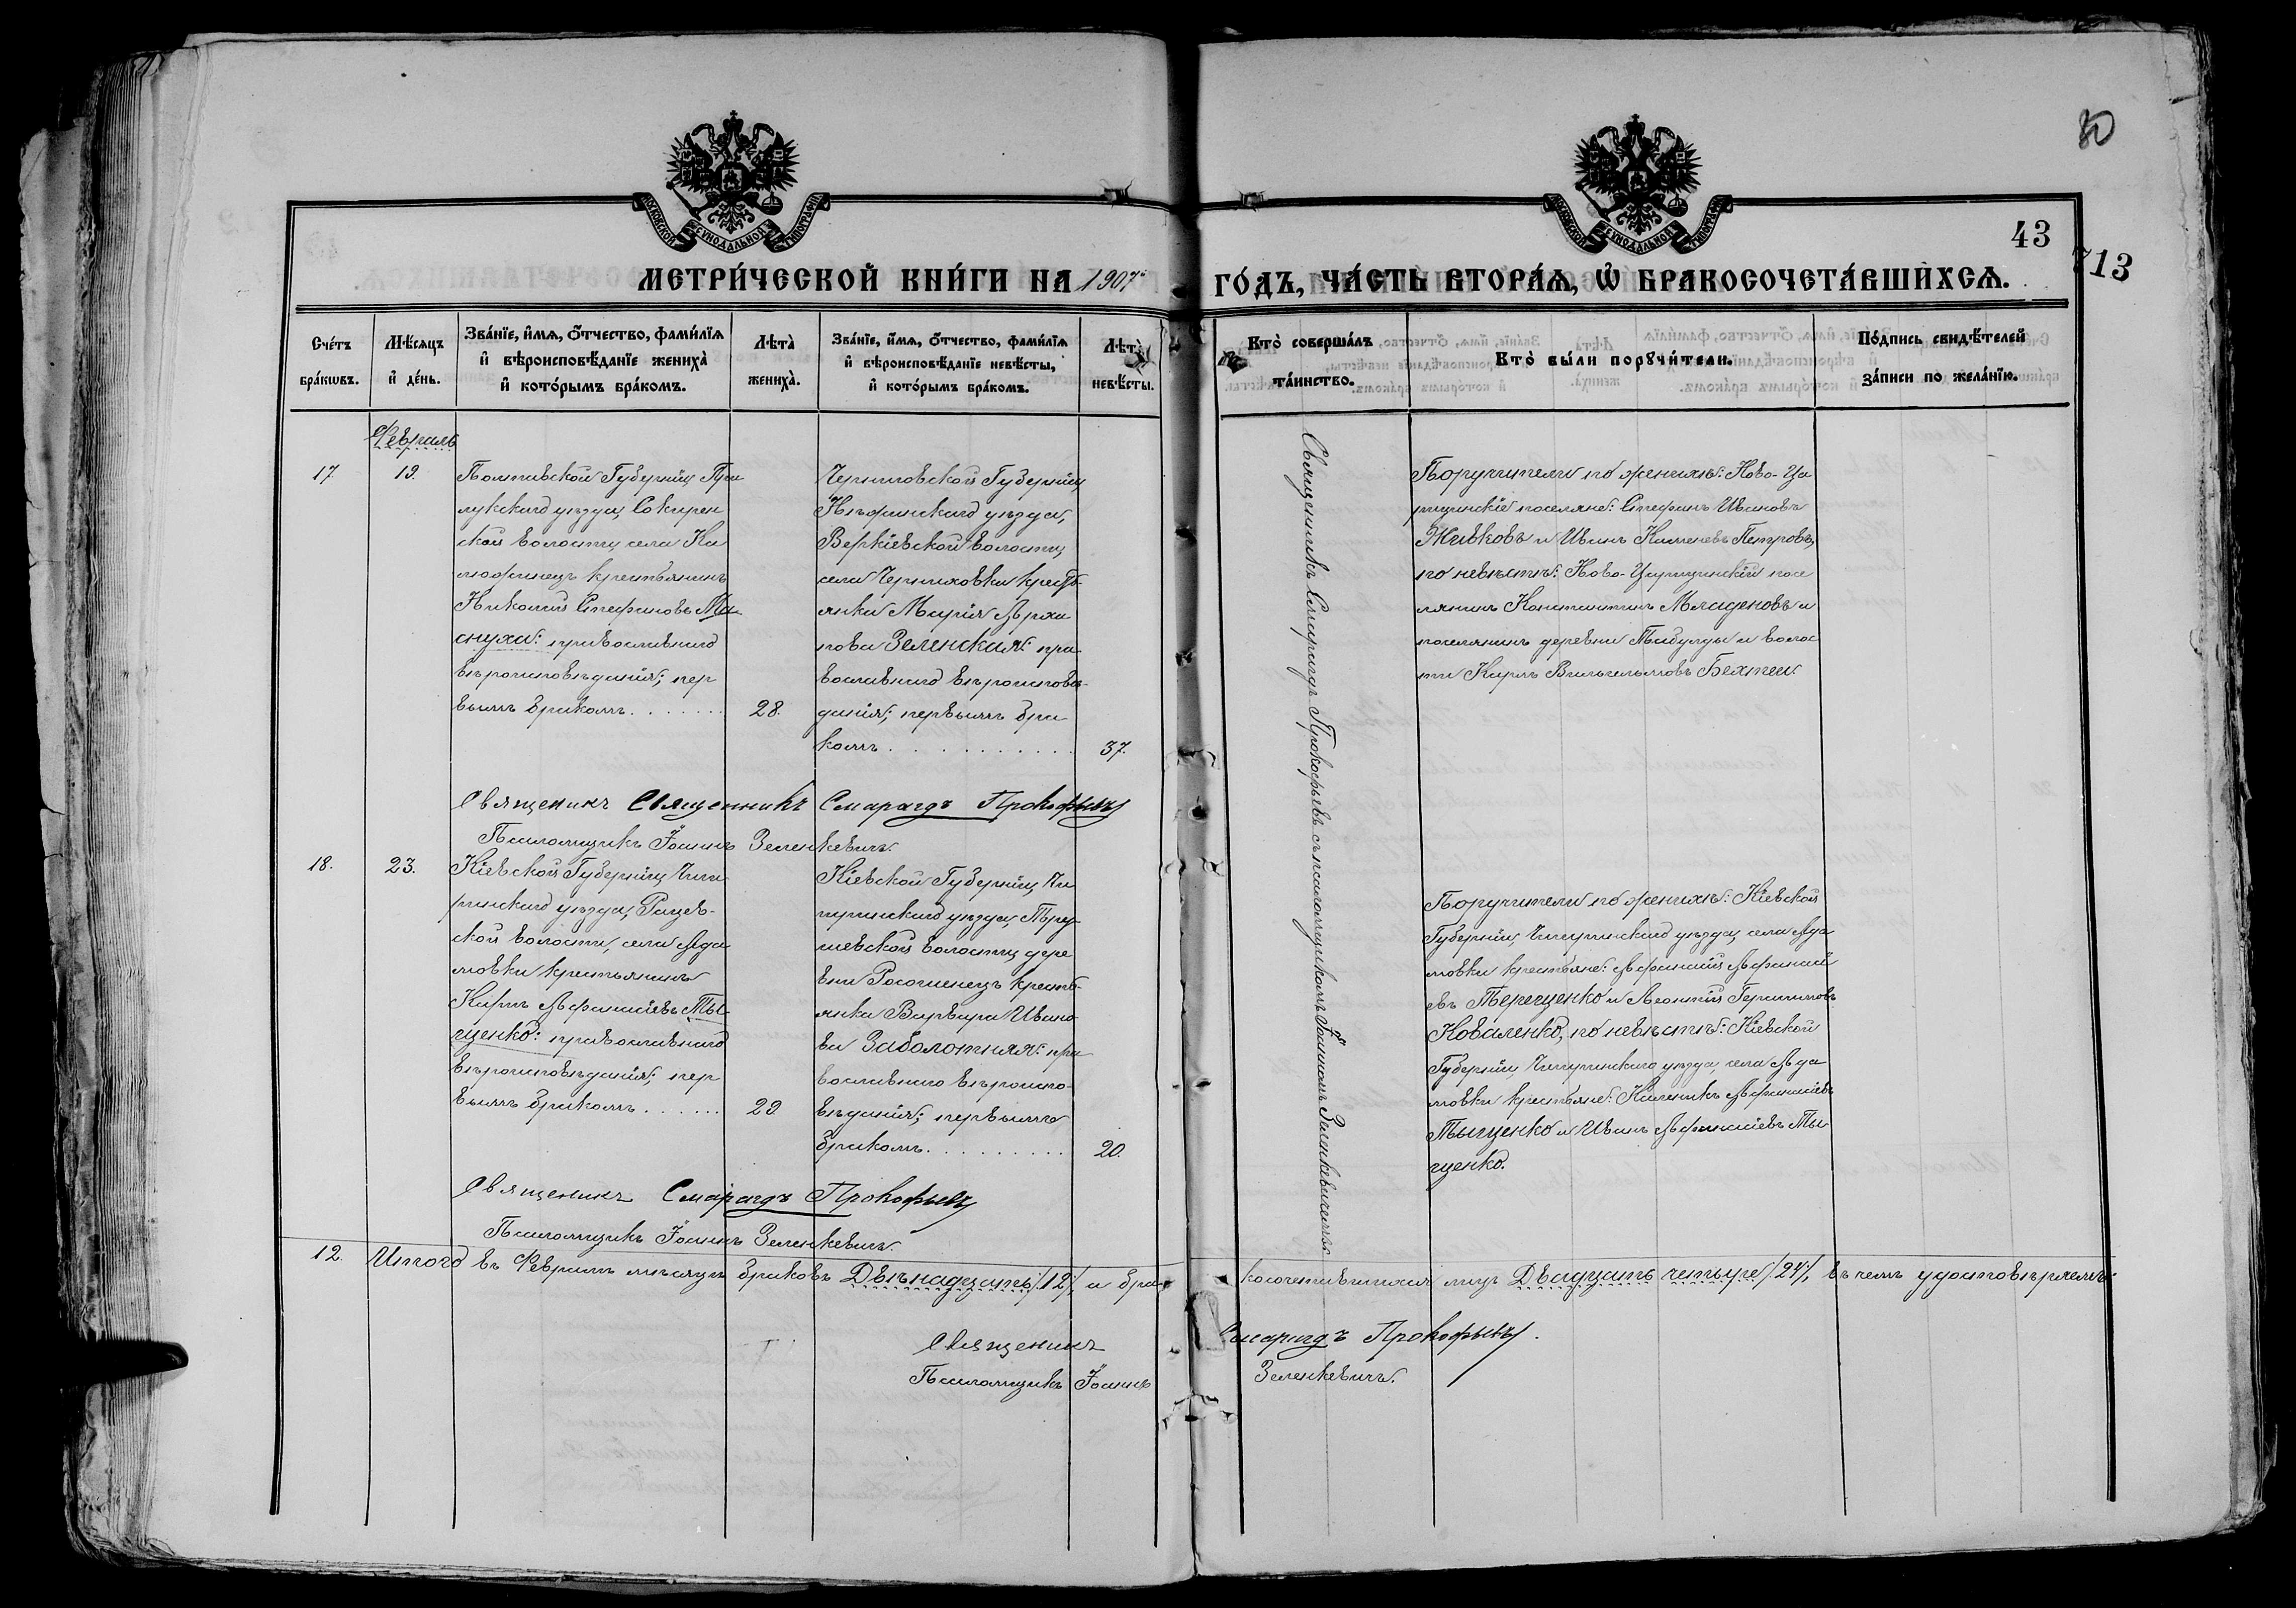 80
43
713
МОСКОВСКОЙ СѴНОДАЛЬНОЙ ТИПОГРАФІИ
МОСКОВСКОЙ СѴНОДАЛЬНОЙ ТИПОГРАФІИ
МЕТРИ́ЧЕСКОЙ КНИ́ГИ НА 1907 ГО́ДЪ, ЧА́СТЬ ВТОРА́Ѧ, Ѿ БРАКОСОЧЕТА́ВШИХСѦ.
Сче́тъ
бра́кѡвъ.
Мѣ́сяцъ
и де́нь.
Зва́нїе, и́мѧ, ѻ́тчество, фами́лїѧ
и вѣроисповѣ́данїе жениха̀
и кото́рымъ бра́комъ.
Лѣта̀
жениха̀.
Зва́нїе, и́мѧ, ѻ́тчество, фами́лїѧ
и вѣроисповѣ́данїе невѣ́сты,
и кото́рымъ бра́комъ.
Лѣта̀
невѣ́сты.
Кто̀ соверша́лъ
та́инство.
Кто̀ бы́ли порꙋчи́тели.
По́дпись свидѣ́телей
за́писи по жела́нїю.
Февраль
17.
19.
Полтавской Губерніи, При
лукскаго уѣзда, Сокирен
ской волости, села Ка
крестьянинъ
Николай Стефановъ Ма
снуха: православнаго
вѣроисповѣданія; пер
вымъ бракомъ.
28.
Черниговской Губерніи,
Нѣжинскаго уѣзда,
Веркіевской волости,
села Черняховки крестъ
янка Марія Архи
пова Зеленская: пра
вославнаго вѣроисповѣ-
данія; первымъ бра
комъ.
37.
Священникъ Священникъ Смарагдъ Прокофьевъ
Псаломщикъ Іоаннъ Зеленкевичъ.
Поручители по женихѣ: Ново-Ца
рицинскіе поселяне: Стефанъ Ивановъ
Живковъ и Иванъ Каменевъ Петровъ,
по невѣстѣ: Ново-Царицинскій посе
лянинъ Константинъ Младеновъ и
поселянинъ деревни Табулды и волос
ти Карлъ Вильгельмовъ Бехтел:
Священникъ Смарагдъ Прокофьевъ съ псаломщикомъ Іоанномъ Зеленкевичемъ
18.
23.
Кіевской Губерніи, Чиги
ринскаго уѣзда, Рацев-
ской волости, села Ада
мовки крестьянинъ
Карпъ Афанасіевъ Ты-
щенко: православнаго
вѣроисповѣданія; пер
вымъ бракомъ.
29.
Кіевской Губерніи, Чи
гиринскаго уѣзда, Тру-
шевской волости, дере
вни Росошенецъ кресть-
янка Варвара Ивано
ва Заболотняя: пра
вославнаго вѣроиспо-
вѣданія; первымъ
бракомъ.
20.
Поручители по женихѣ: Кіевской
Губерніи, Чигиринскаго уѣзда, села Ада
мовки крестьяне: Афанасій Афанасі
евъ Терещенко и Леонтій Герасимовъ
Коваленко, по невѣстѣ: Кіевской
Губерніи, Чигиринскаго уѣзда, села Ада
мовки крестьяне: Каленикъ Афанасіевъ
Тыщенко и Иванъ Афанасіевъ Ты
щенко.
Священникъ Смарагдъ Прокофьевъ
Псаломщикъ Іоаннъ Зеленкевичъ.
12. Итого въ Февралѣ мѣсяцѣ браковъ Двѣнадцать /12/, а бра- косочетавшихся лицъ Двадцать четыре /24/, въ чемъ удостовѣряемъ:
Священникъ Смарагдъ Прокофьевъ.
Псаломщикъ Іоаннъ Зеленкевичъ.